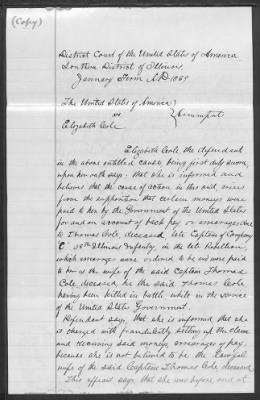 (Copy)
District Court of the United States of America
Southern District of Illinois
January Term A.D. 1869
The United States of America)
vs ) Assumpsit
Elizabeth Cole
Elizabeth Cole the defendant
in the above entitled cause, being first duly sworn,
upon her oath says, that she is informed and
believes that the cause of action in this suit, arises
from the supposition that certain moneys were
paid to her by the Government of the United States
for and on account of back pay or arrearages due
to Thomas Cole, deceased, late Captain of Company
"C" 38th Illinois Infantry, in the late Rebellion,
which arrearages were ordered to be and were paid
to her as the wife of the said Captain Thomas
Cole, deceased, he the said Thomas Cole
having been killed in battle whilst in the service
of the United States Government.
Defendant says, that she is informed that she
is charged with fraudulently setting up the claim
and receiving said money, arrearages of pay,
because she is not believed to be the lawful
wife of the said Captain Thomas Cole, deceased
This affiant says, that she was before and at